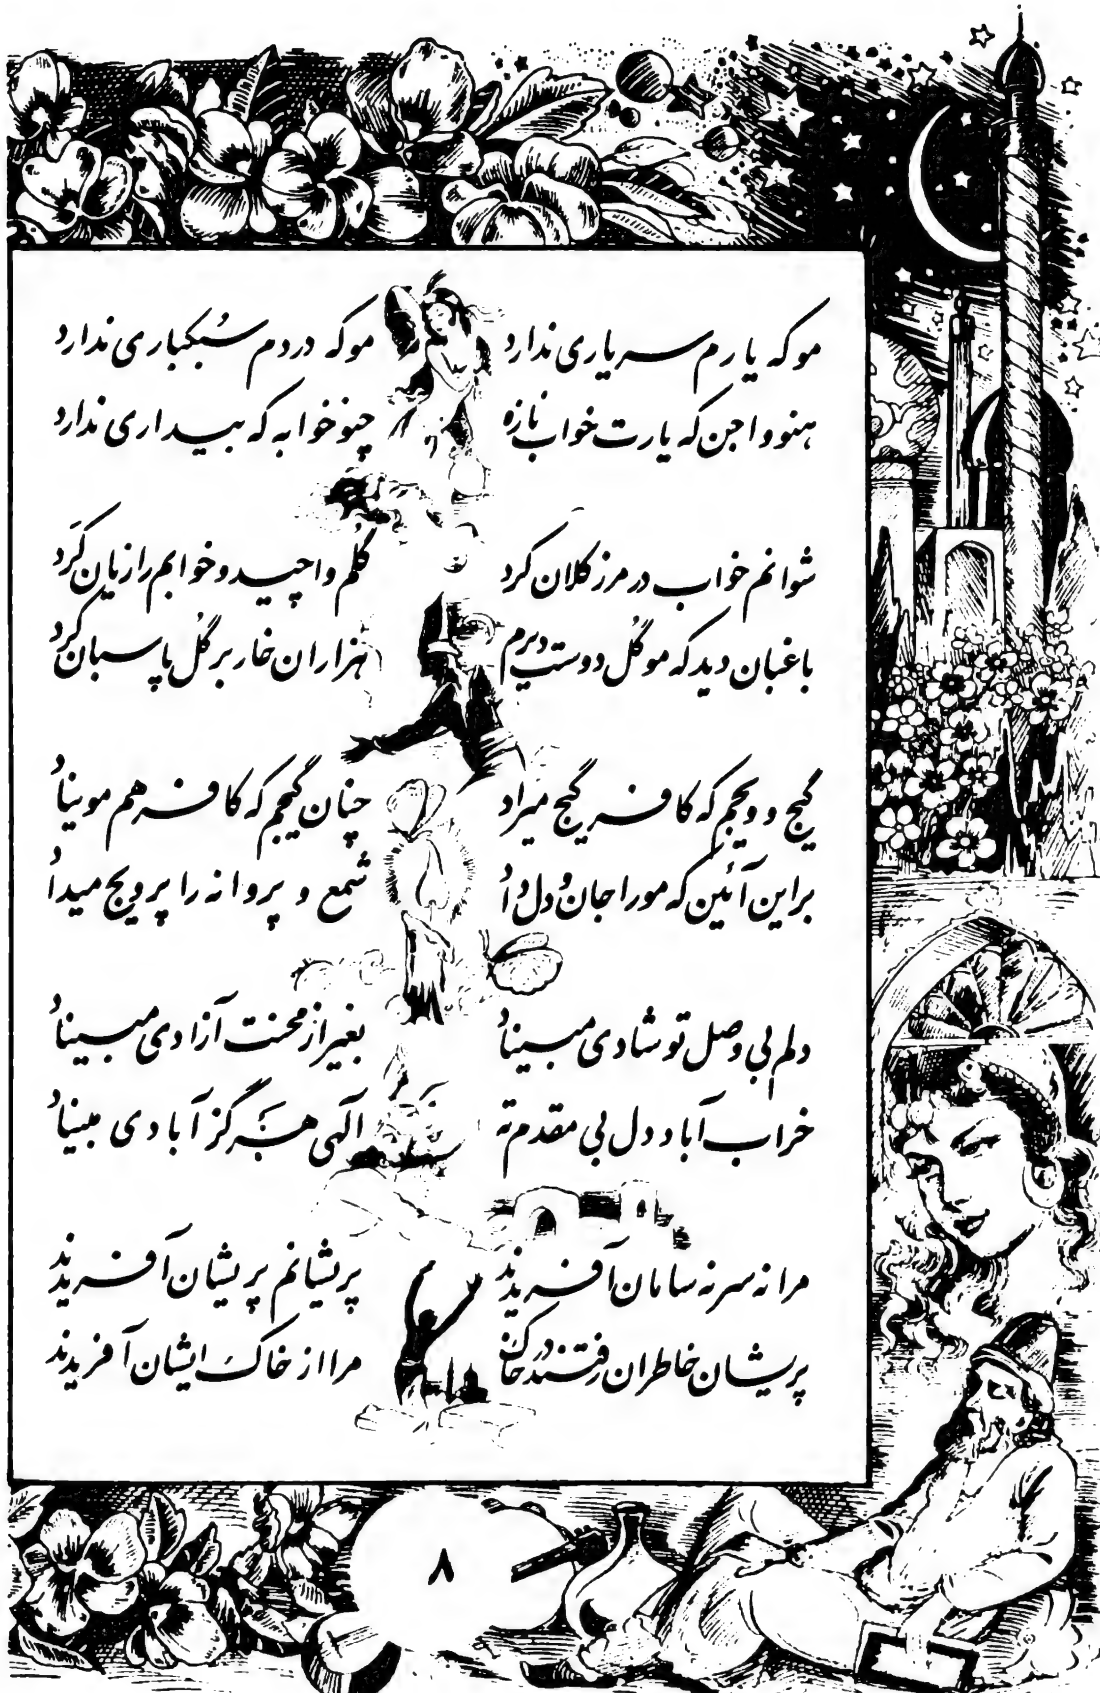 مو که یارم سر یاری ندارد مو که دردم سُبکباری ندارد
هنو واجن که یارت خواب نازه چنو خوابه که بیداری ندارد
شوانم خواب در مرز گلان کرد گُلم واچید و خوابم را زیان کَرد
باغبان دید که مو گُل دوست دیرم هزاران خار بر گُل پاسبان کرد
گیج و ویجم که کافر گیج میراد چنان گیجم که کافر هم موینادُ
براین آئین که مو را جان و دل دادُ شمع و پروانه را پر ویج میدادُ
دلم بی وصل تو شادی مبینادُ بغیر از محنت آزادی مبینادُ
خراب آباد دل بی مقدم ته آلهی هَرگز آبادی مبینادُ
مرا نه سر نه سامان آفریدند پریشانم پریشان آفریدند
پریشان خاطران رفتند در خاک مرا از خاک ایشان آفریدند
۸